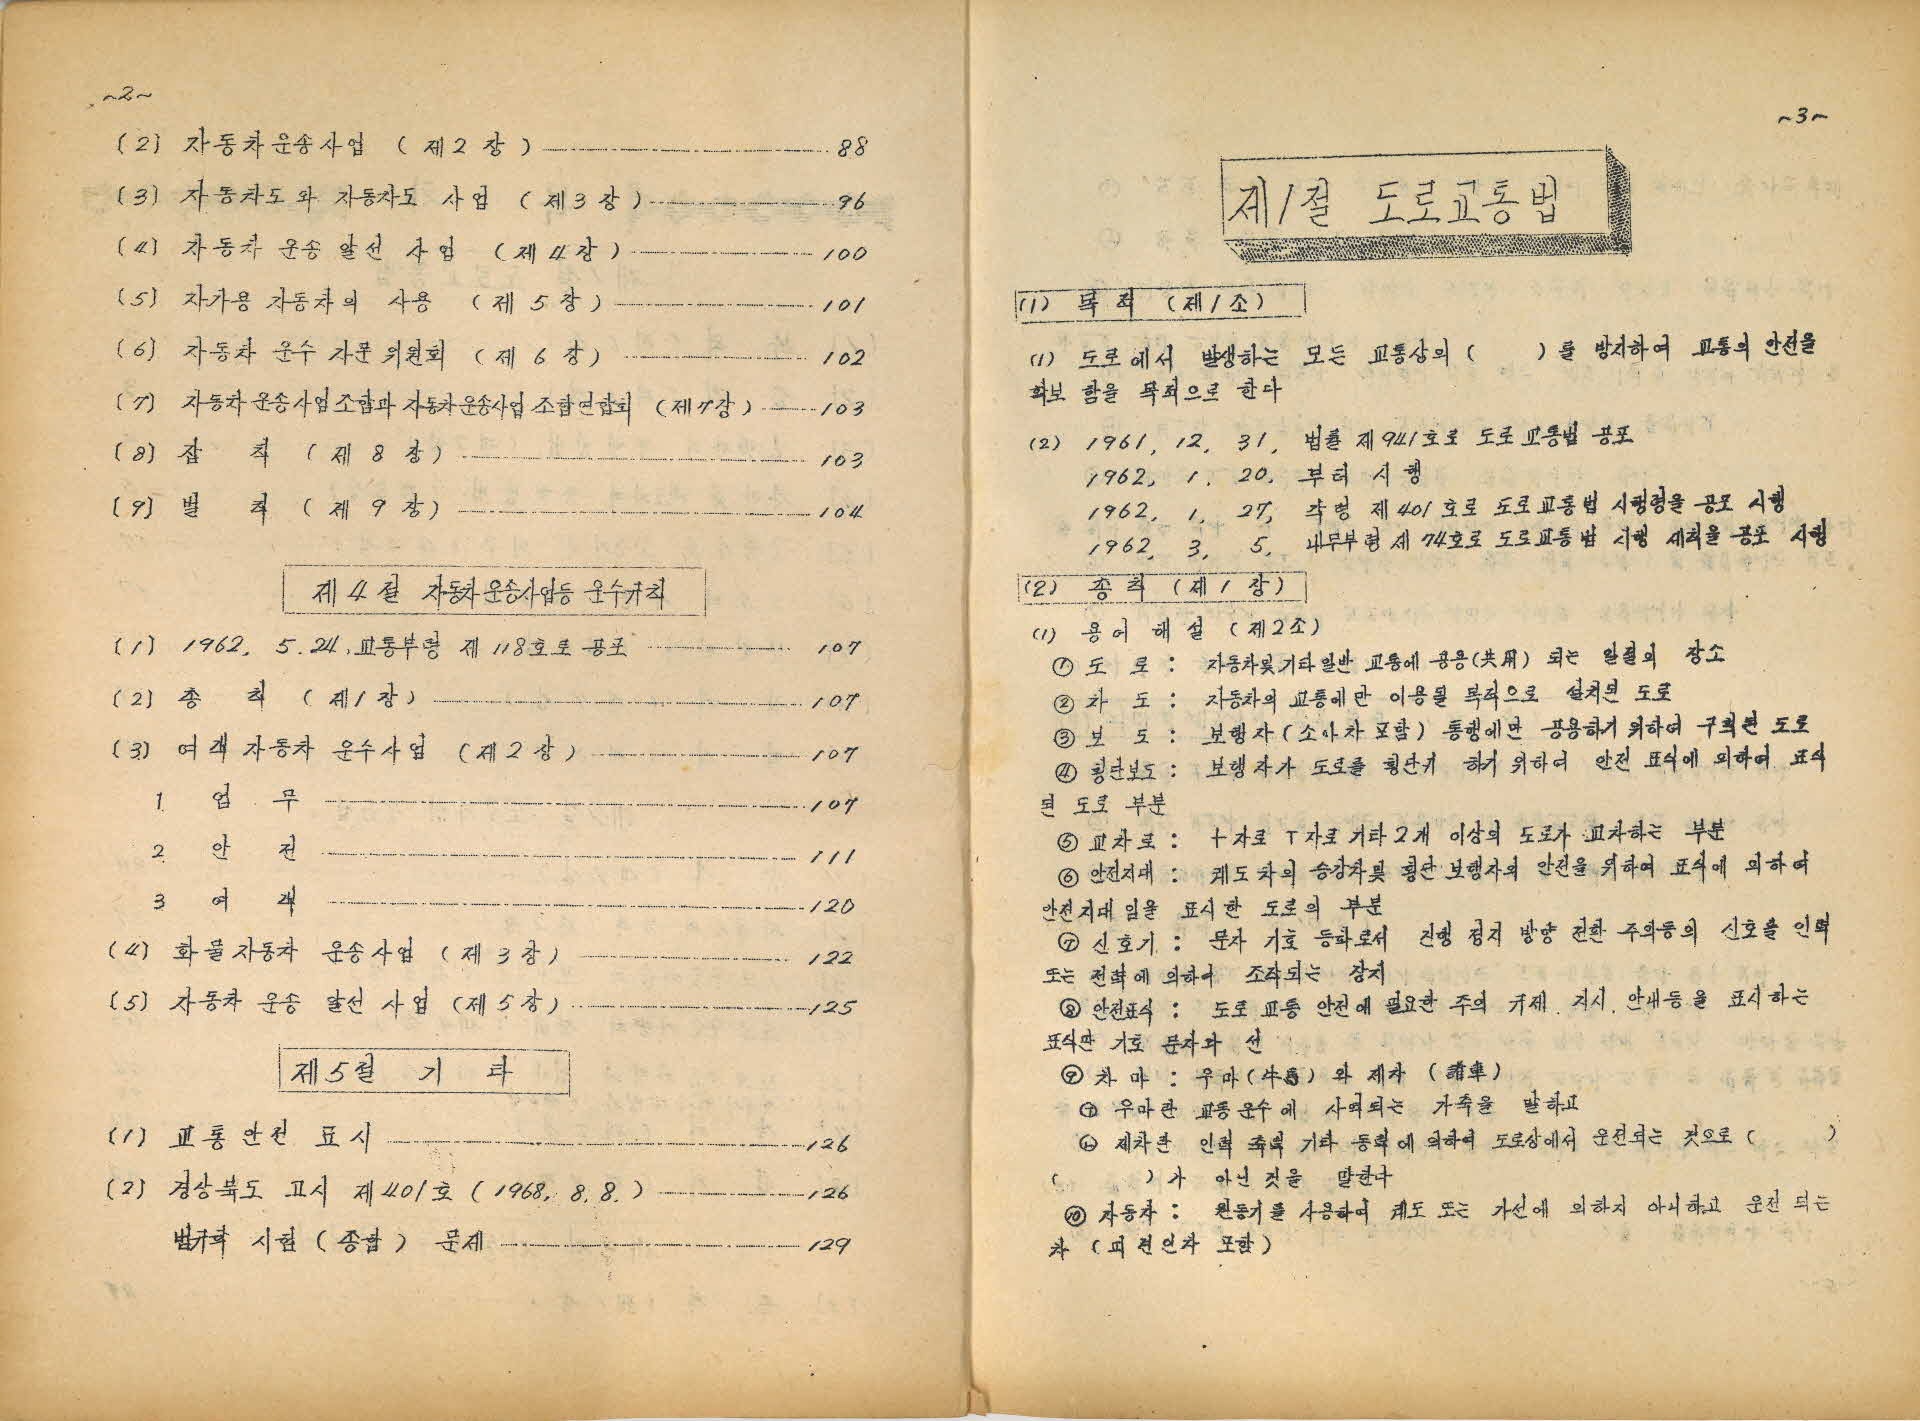 ~2~
(2) 자동차운송사업 (제2장) 88
(3) 자동차도와 자동차도 사업 (제3장) 96
(4) 자동차 운송 알선 사업 (제4장) 100
(5) 자가용 자동차의 사용 (제5장) 101
(6) 자동차 운수 자문 위원회 (제6장) 102
(7) 자동차운송사업조합과 자동차운송사업조합연합회 (제7장) 103
(8) 잡 칙 (제8장) 103
(9) 벌 칙 (제9장) 104
제4절 자동차운송사업등 운수규칙
(1) 1962. 5. 24. 교통부령 제118호로 공포 107
(2) 총 칙 (제1장) 107
(3) 여객자동차 운수사업 (제2장) 107
1 업 무 107
2 안 전 111
3 여 객 120
(4) 화물자동차 운송사업 (제3장) 122
(5) 자동차 운송 알선 사업 (제5장) 125
제5절 기 타
(1) 교통안전 표시 126
(2) 경상북도 고시 제401호 (1968. 8. 8.) 126
법규학 시험 (종합) 문제 129
~3~
제1절 도로교통법
(1) 목적 (제1조)
(1) 도로에서 발생하는 모든 교통상의 ( )를 방지하여 교통의 안전을
확보 함을 목적으로 한다
(2) 1961. 12. 31. 법률 제941호로 도로교통법 공포
1962. 1. 20. 부터 시행
1962. 1. 27. 각령 제401호로 도로교통법 시행령을 공포 시행
1962. 3. 5. 내무부령 제74호로 도로교통법 시행 세칙을 공포 시행
(2) 총칙 (제1장)
(1) 용어 해설 (제2조)
① 도 로 : 자동차및기타일반 교통에 공용(共用) 되는 일절의 장소
② 차 도 : 자동차의 교통에만 이용될 목적으로 설치된 도로
③ 보 도 : 보행자 (소아차 포함) 통행에만 공용하기 위하여 구획된 도로
④ 횡단보도 : 보행자가 도로를 횡단키 하기 위하여 안전 표식에 의하여 표식
된 도로 부분
⑤ 교차로 : 十자로 T자로 기타 2개 이상의 도로가 교차하는 부분
⑥ 안전지대 : 궤도차의 승강자및 횡단 보행자의 안전을 위하여 표식에 의하여
안전지대 임을 표시한 도로의 부분
⑦ 신호기 : 문자 기호 등화로서 진행 정지 방향 전환 주의등의 신호를 인력
또는 전력에 의하여 조작되는 장치
⑧ 안전표식 : 도로 교통 안전에 필요한 주의 규제. 지시. 안내등을 표시하는
표식판 기호 문자과 선
⑨ 차 마 : 우마(牛馬)와 제차 (諸車)
㉠ 우마란 교통운수에 사역되는 가축을 말하고
㉡ 제차란 인력 축력 기타 동력에 의하여 도로상에서 운전되는 것으로 ( )
( )가 아닌 것을 말한다
⑩ 자동차 : 원동기를 사용하여 궤도 또는 가선에 의하지 아니하고 운전 되는
차 (피견인차 포함)